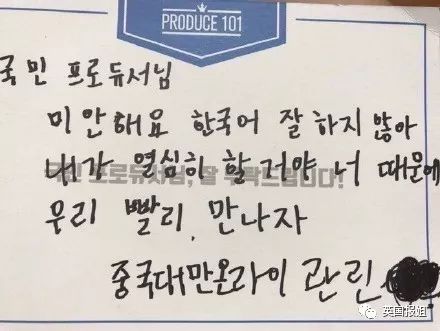 PRODUCE 101
국민 프로듀서님
미안해요 한국어 잘 하지 않아
내가 열심히 할 거야 너 때문에
프로듀서님, 잘 부탁드립니다!
우리 빨리 만나자
중국대만온라이 관린
英国报姐